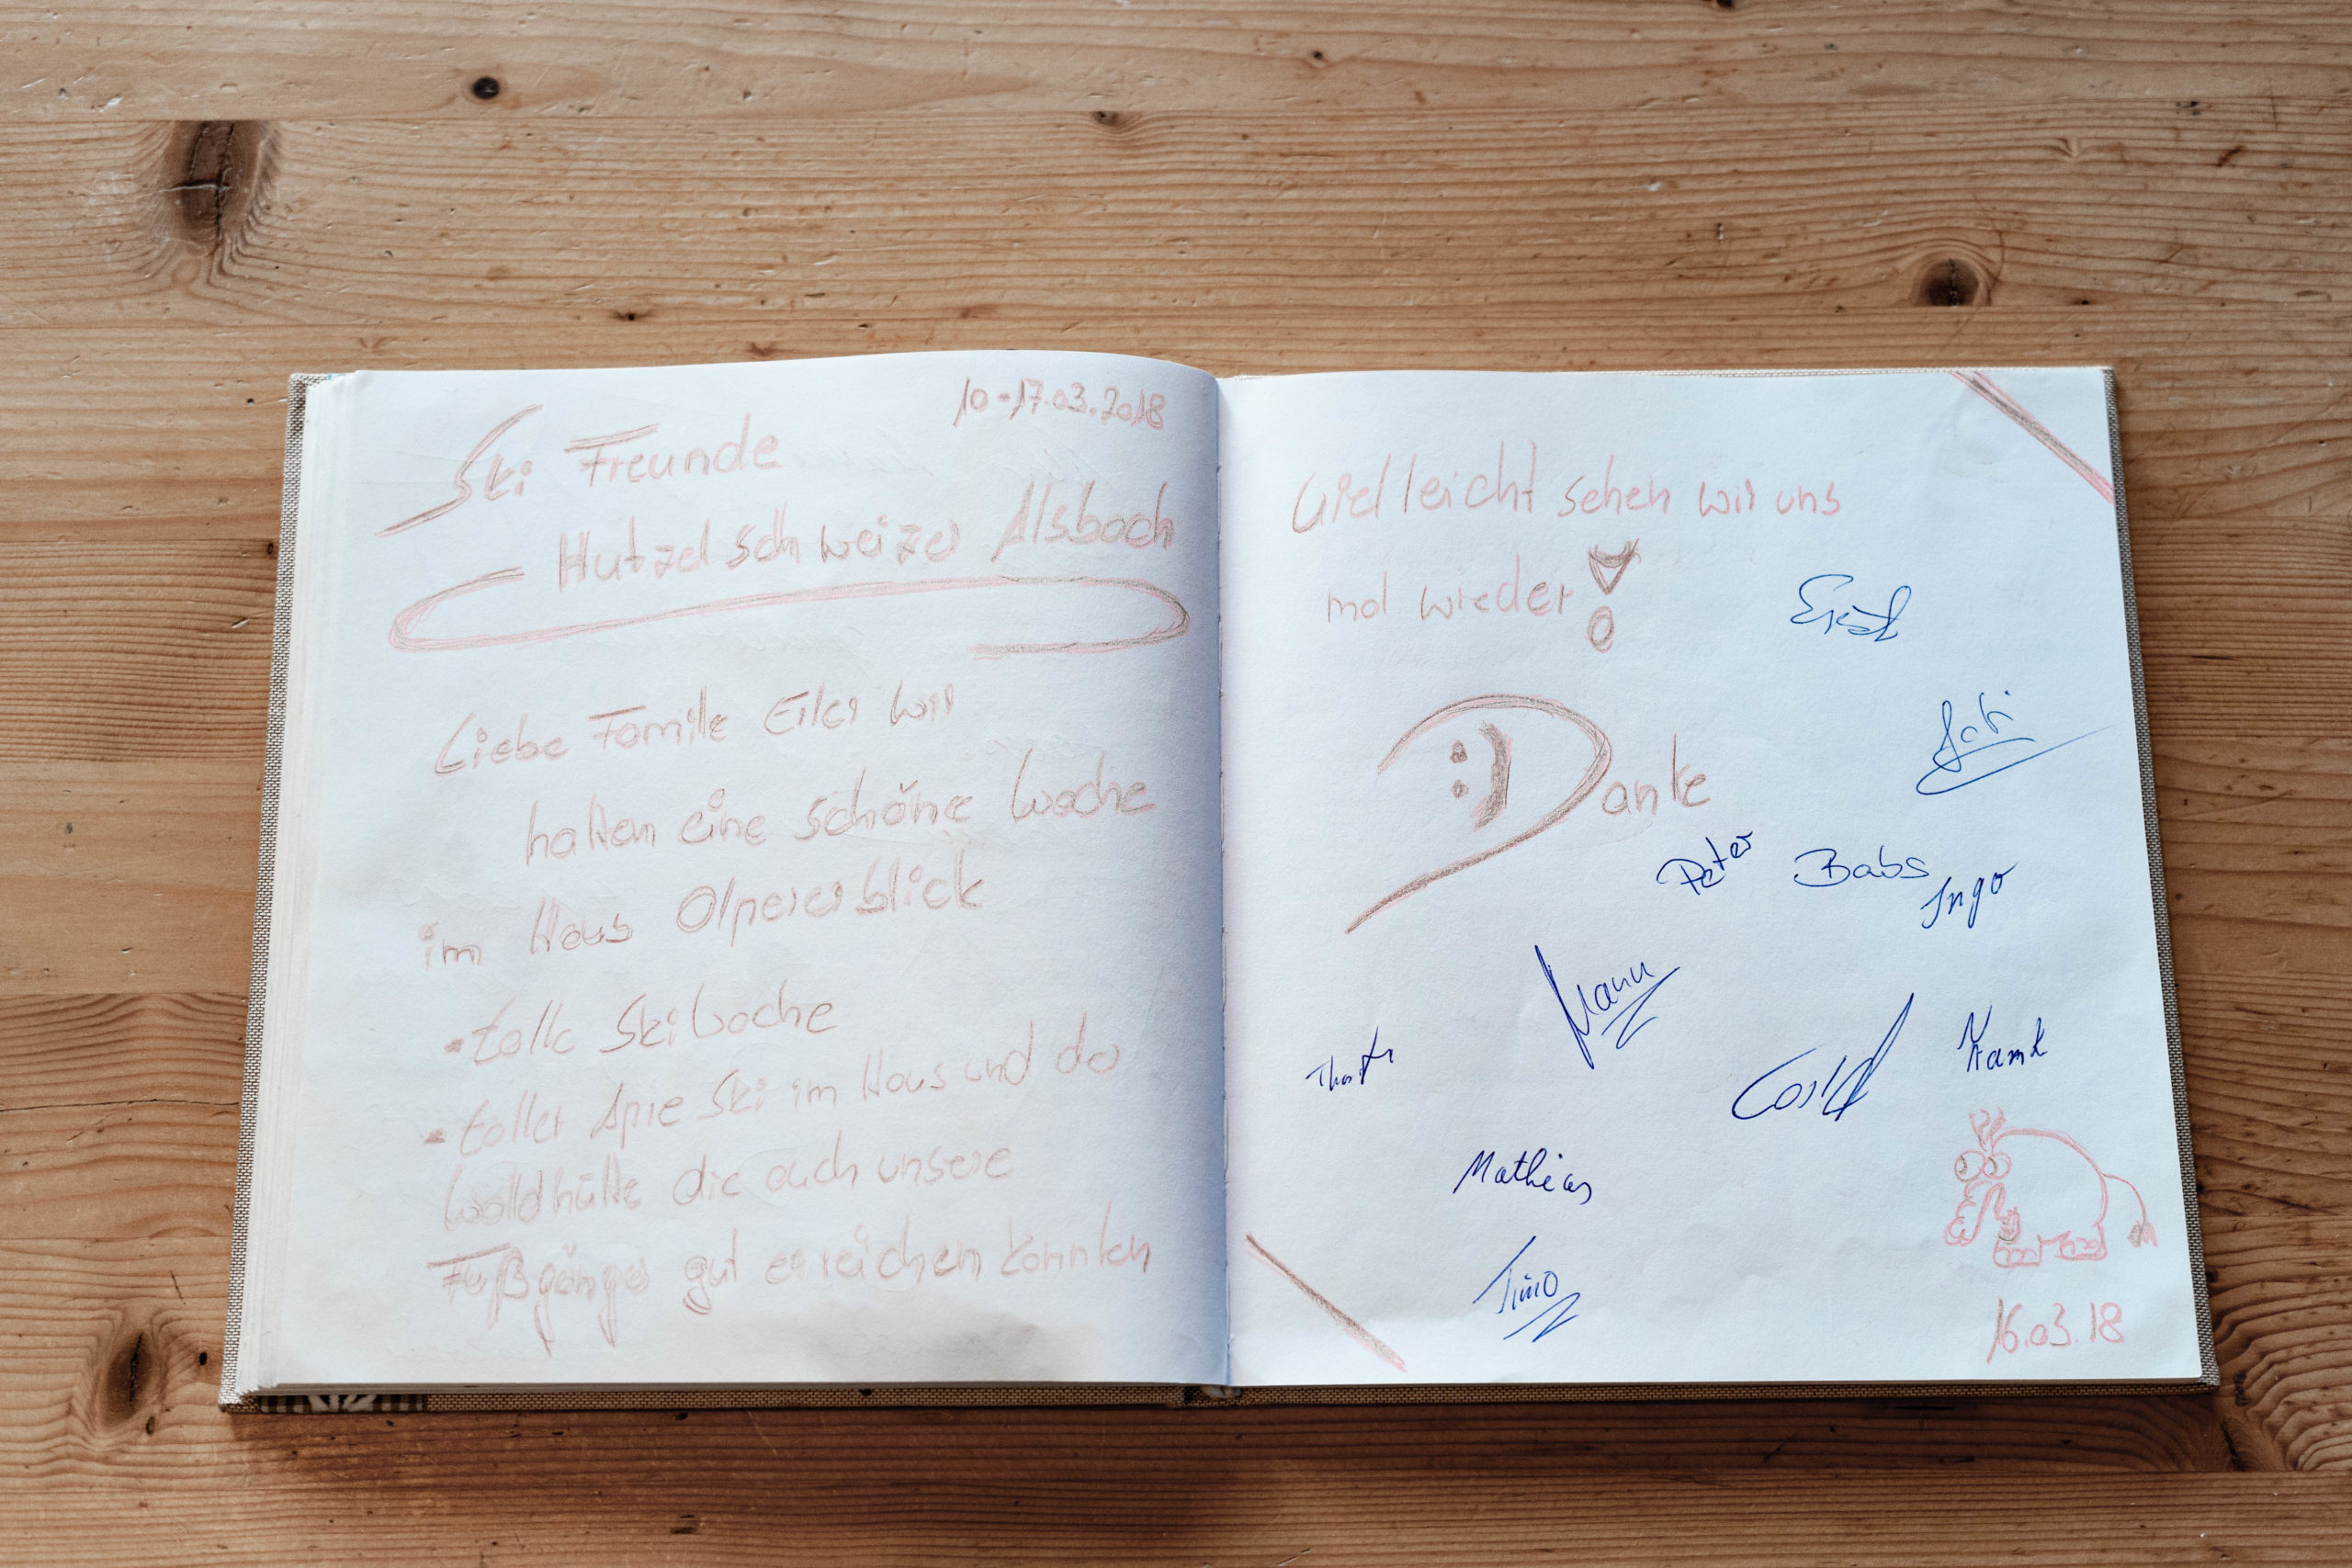 10-17.03.2018
Ski Freunde
Hutzelschweizer Alsbach
Liebe Familie Eiler wir
hatten eine schöne Woche
im Haus Olpererblick
- tolle Skiwoche
- toller Apre Ski im Haus und der
Waldhütte die auch unsere
Fußgänger gut erreichen konnten
Vielleicht sehen wir uns
mal wieder!
:) Danke
Peter Babs
Ingo
Manu
Mathias
Timo
16.03.18